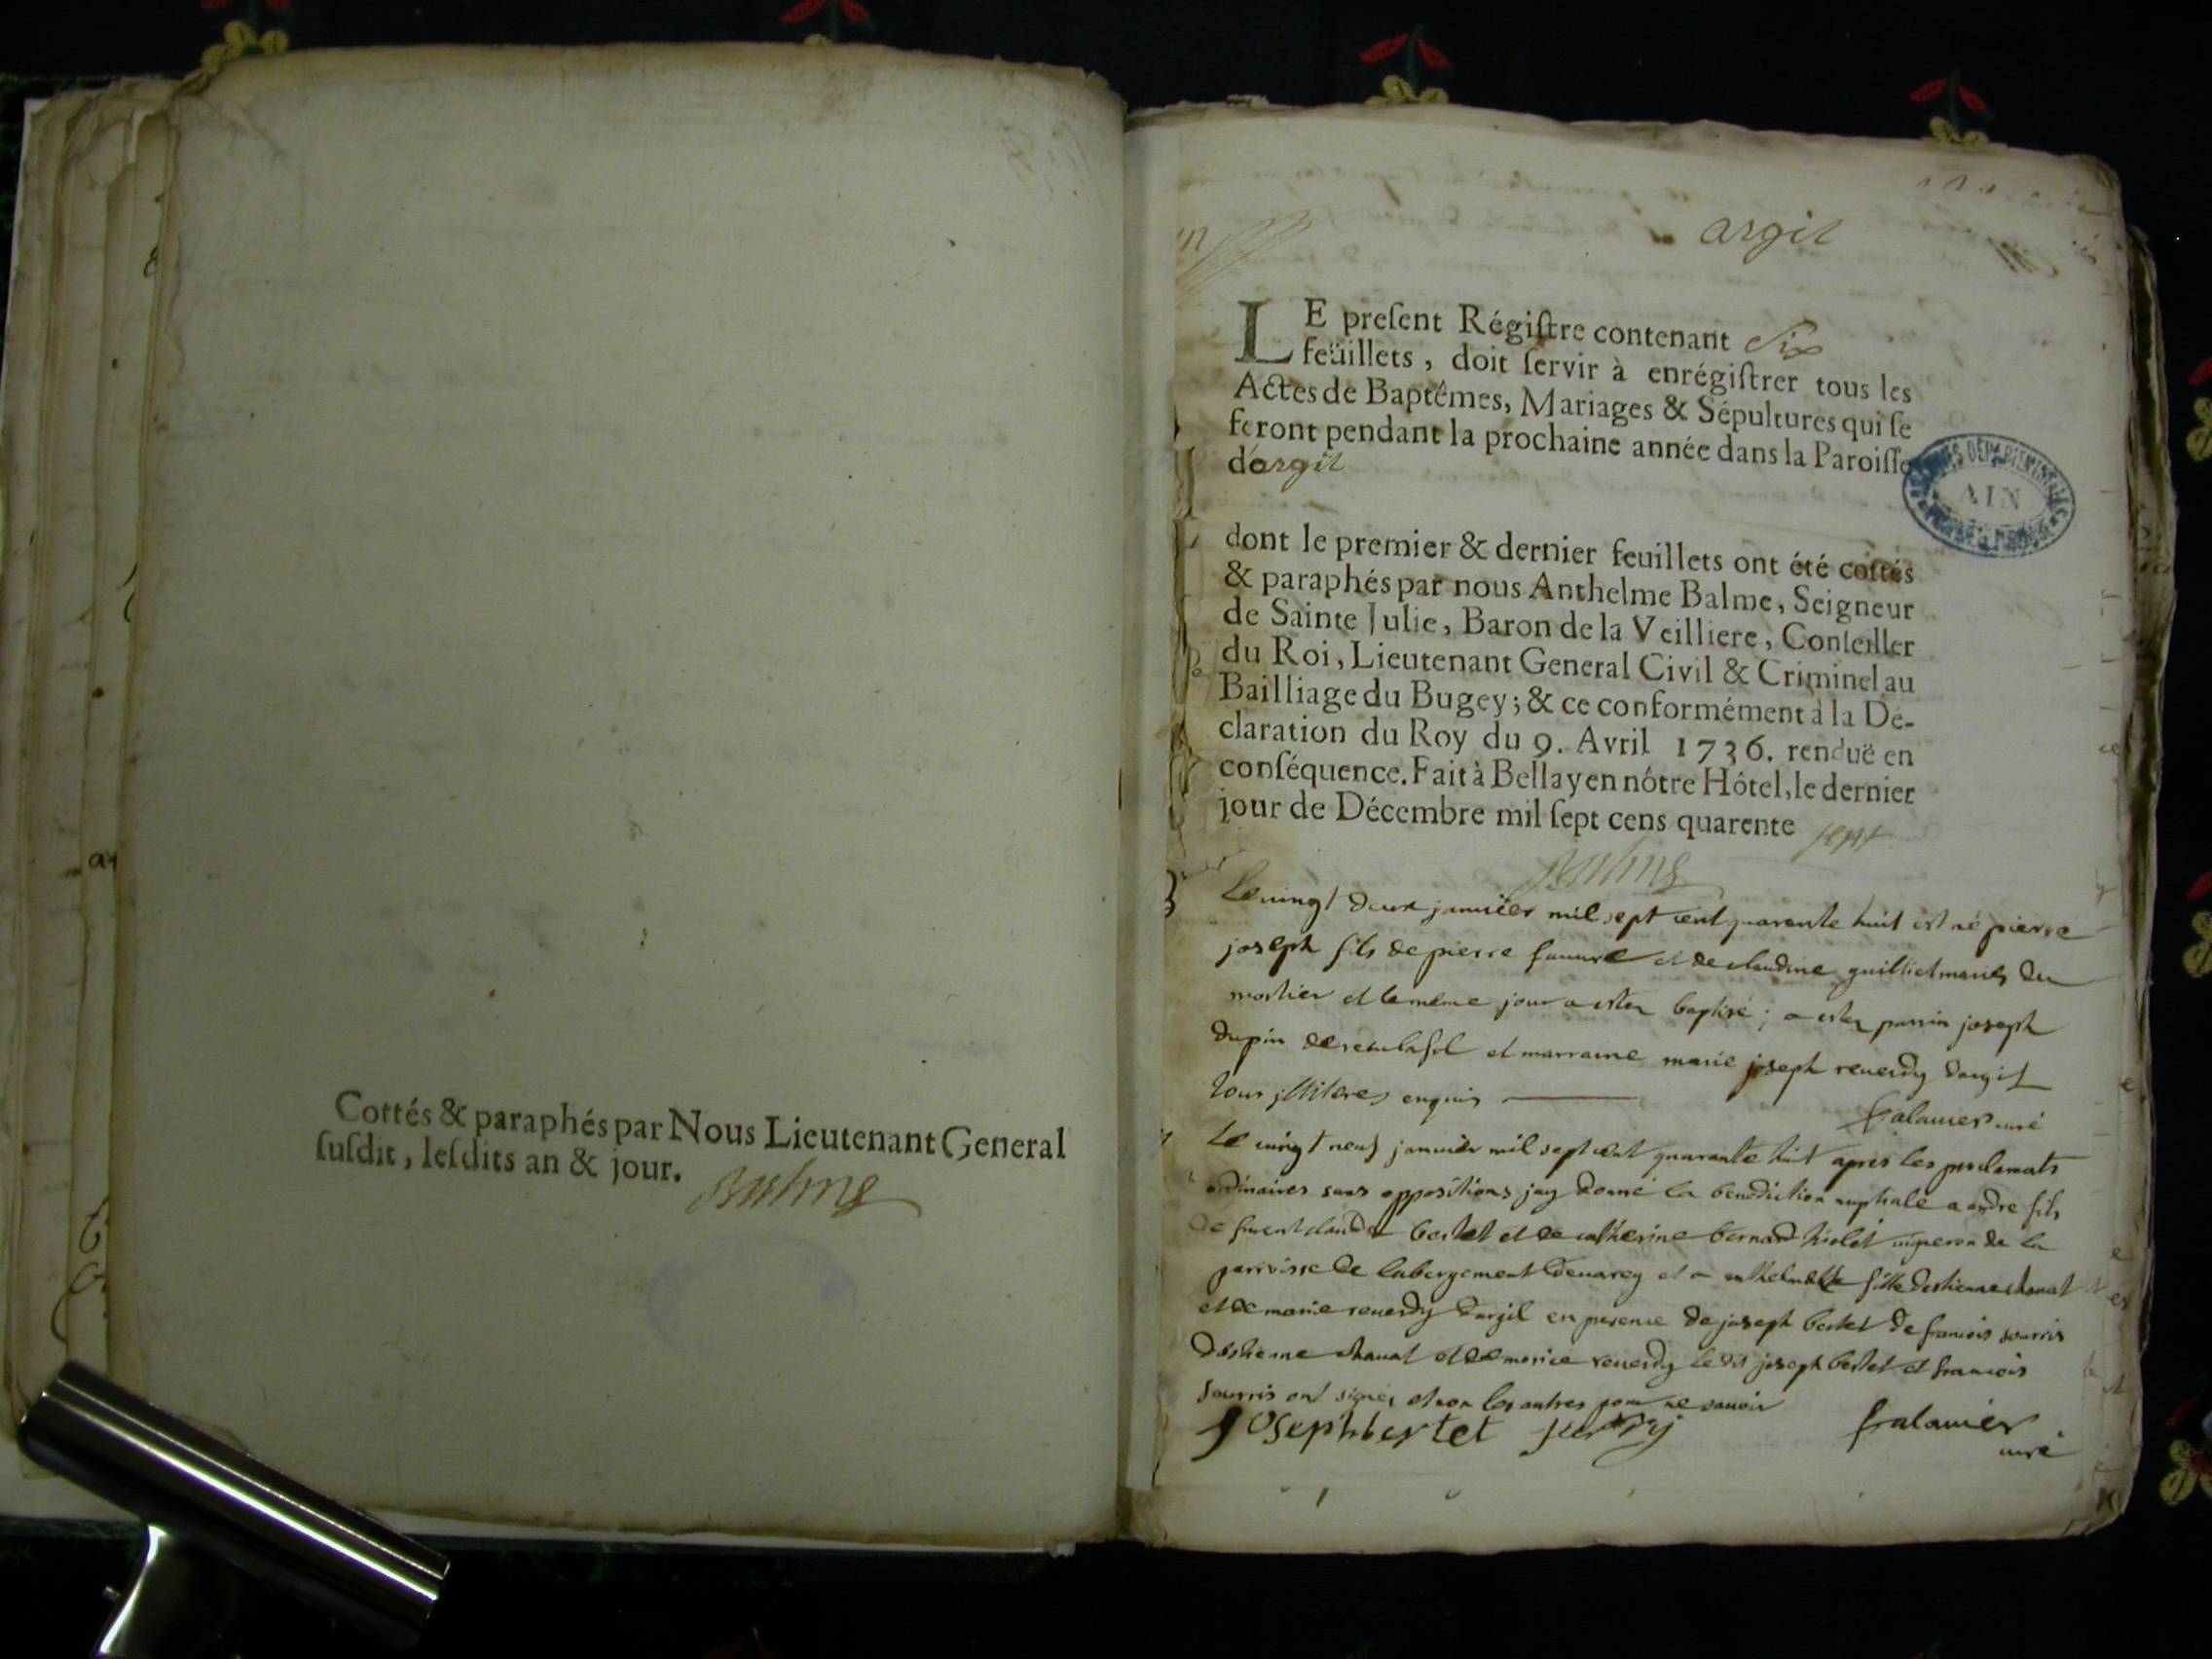 Cottés & paraphés par Nous Lieutenant General
ſuſdit, leſdits an & jour.
argit
LE preſent Régiſtre contenant Six
feüillets, doit ſervir à enrégiſtrer tous les
Actes de Baptêmes, Mariages & Sépultures qui ſe
feront pendant la prochaine année dans la Paroiſſe
d'argit
ARCHIVES DÉPARTEMENTALES
AIN
dont le premier & dernier feuillets ont été cottés
& paraphés par nous Anthelme Balme, Seigneur
de Sainte Julie, Baron de la Veilliere, Conſeiller
du Roi, Lieutenant General Civil & Criminel au
Bailliage du Bugey; & ce conformément à la De-
claration du Roy du 9. Avril 1736. renduë en
conſéquence. Fait à Bellay en nôtre Hôtel, le dernier
jour de Décembre mil ſept cens quarente sept
Le vingt deux janvier mil sept cent quarante huit est né pierre
joseph fils de pierre et de claudine guilliet mariés du
mortier et le même jour a estez baptisé; a estez parrin joseph
dupin et marraine marie joseph reverdy dargit
tous illiteres enquis
falavier curé
Le vingt neuf janvier mil sept cent quarante huit apres les proclamats
ordinaires sans oppositions jay donné la benediction nuptiale a andre fils
de claude bertet et de catherine bernard violet vigneron de la
parroisse de labergement devarey et a anthelmette fille destienne chavat
et de marie reverdy dargil en presence de joseph bertet de francois sourris
destienne chavat et de marie reverdy le dit joseph bertet et francois
sourris ont signés et non les autres pour ne savoir
Joseph bertet
falavier
curé